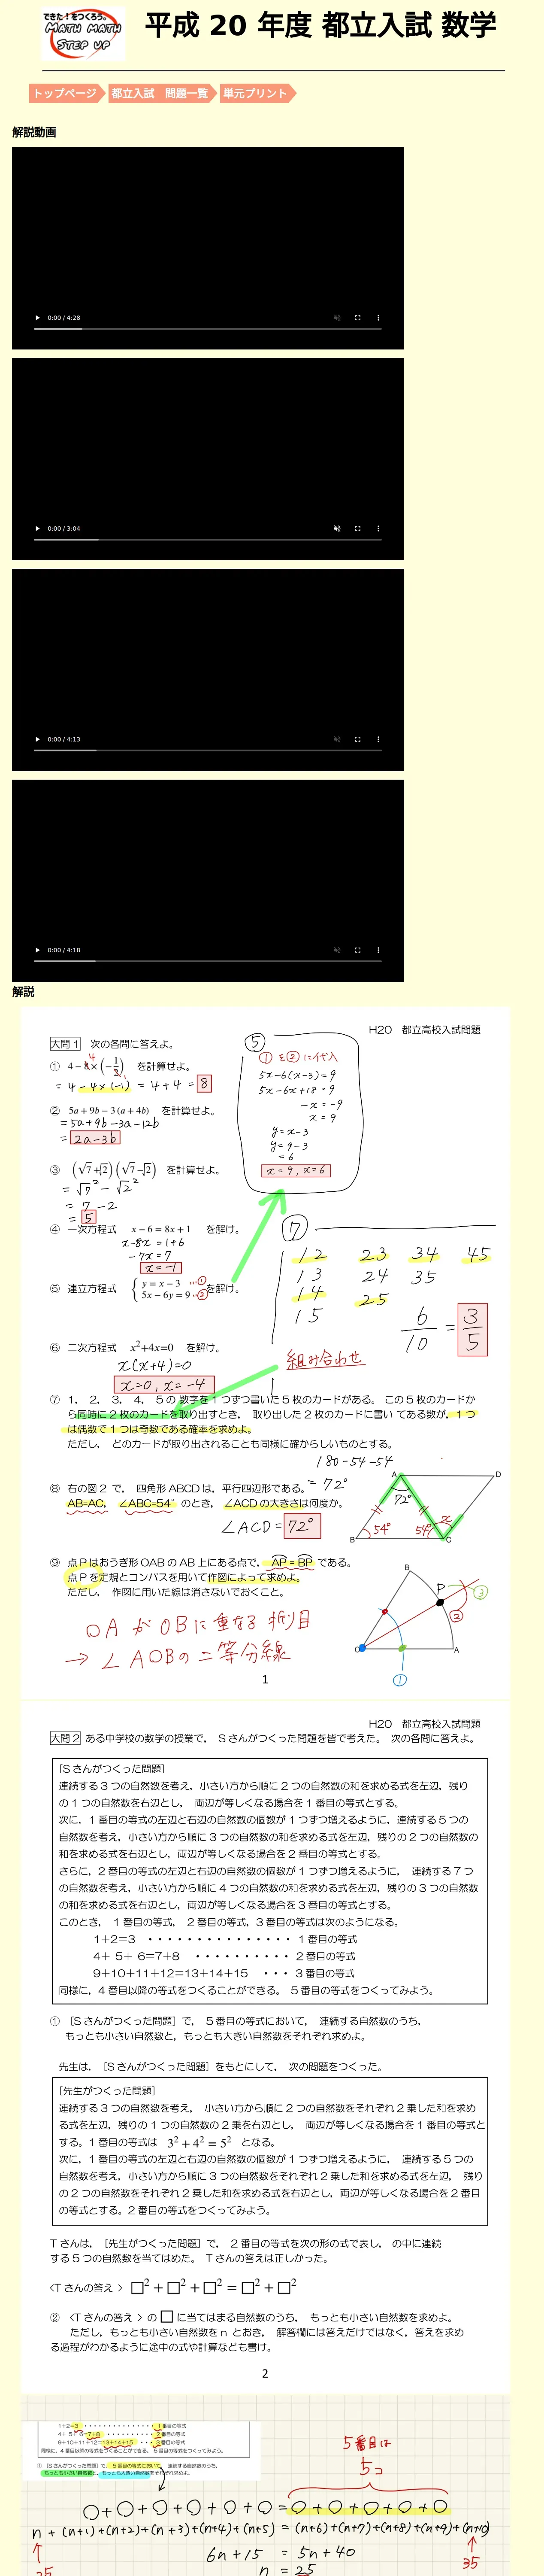 できた！をつくろう。
MATH MATH
STEP UP
平成 20 年度 都立入試 数学
トップページ
都立入試 問題一覧
単元プリント
解説動画
0:00 / 4:28
0:00 / 3:04
0:00 / 4:13
0:00 / 4:18
解説
H20 都立高校入試問題
大問１ 次の各問に答えよ。
① 4−8×(−1/2) を計算せよ。
= 4 - 4×(-1) = 4 + 4 = 8
② 5a + 9b − 3(a + 4b) を計算せよ。
= 5a+9b-3a-12b
= 2a-3b
③ (√7+√2)(√7−√2) を計算せよ。
= √7² - √2²
= 7 - 2
= 5
④ 一次方程式 x − 6 = 8x + 1 を解け。
x-8x = 1+6
-7x = 7
x = -1
⑤ 連立方程式 { y = x − 3 …① 5x − 6y = 9 …② を解け。
⑤
①を②に代入
5x-6(x-3)=9
5x-6x+18=9
-x = -9
x = 9
y = x-3
y = 9-3
= 6
x=9, x=6
⑥ 二次方程式 x²+4x=0 を解け。
x(x+4)=0
x=0, x=-4
⑦
12 23 34 45
13 24 35
14 25
15
6/10 = 3/5
組み合わせ
⑦ 1， 2， 3， 4， 5 の 数字を１つずつ書いた５枚のカードがある。 この５枚のカードか
ら同時に２枚のカードを取り出すとき， 取り出した２枚のカードに書い てある数が，１つ
は偶数で１つは奇数である確率を求めよ。
ただし， どのカードが取り出されることも同様に確からしいものとする。
180-54-54
= 72°
⑧ 右の図２で， 四角形 ABCD は，平行四辺形である。
AB=AC， ∠ABC=54° のとき，∠ACD の大きさは何度か。
∠ACD = 72°
A D B C 72° 54° 54° x
⑨ 点 P はおうぎ形 OAB の AB 上にある点で， AP = BP である。
点 P を定規とコンパスを用いて作図によって求めよ。
ただし， 作図に用いた線は消さないでおくこと。
OAがOBに重なる折り目
→ ∠AOBの二等分線
B P O A ① ② ③
1
H20 都立高校入試問題
大問２ ある中学校の数学の授業で， S さんがつくった問題を皆で考えた。 次の各問に答えよ。
［S さんがつくった問題］
連続する３つの自然数を考え，小さい方から順に２つの自然数の和を求める式を左辺，残り
の１つの自然数を右辺とし， 両辺が等しくなる場合を１番目の等式とする。
次に，１番目の等式の左辺と右辺の自然数の個数が１つずつ増えるように，連続する５つの
自然数を考え，小さい方から順に３つの自然数の和を求める式を左辺，残りの２つの自然数の
和を求める式を右辺とし，両辺が等しくなる場合を２番目の等式とする。
さらに，２番目の等式の左辺と右辺の自然数の個数が１つずつ増えるように， 連続する７つ
の自然数を考え，小さい方から順に４つの自然数の和を求める式を左辺，残りの３つの自然数
の和を求める式を右辺とし，両辺が等しくなる場合を３番目の等式とする。
このとき， １番目の等式， ２番目の等式，３番目の等式は次のようになる。
1+2=3 ・・・・・・・・・・・・・・・ １番目の等式
4+ 5+ 6=7+8 ・・・・・・・・・・ ２番目の等式
9+10+11+12=13+14+15 ・・・ ３番目の等式
同様に，４番目以降の等式をつくることができる。 ５番目の等式をつくってみよう。
① ［S さんがつくった問題］で， ５番目の等式において， 連続する自然数のうち，
もっとも小さい自然数と，もっとも大きい自然数をそれぞれ求めよ。
先生は，［S さんがつくった問題］をもとにして， 次の問題をつくった。
［先生がつくった問題］
連続する３つの自然数を考え， 小さい方から順に２つの自然数をそれぞれ２乗した和を求め
る式を左辺，残りの１つの自然数の２乗を右辺とし， 両辺が等しくなる場合を１番目の等式と
する。１番目の等式は 3² + 4² = 5² となる。
次に，１番目の等式の左辺と右辺の自然数の個数が１つずつ増えるように， 連続する５つの
自然数を考え，小さい方から順に３つの自然数をそれぞれ２乗した和を求める式を左辺， 残り
の２つの自然数をそれぞれ２乗した和を求める式を右辺とし，両辺が等しくなる場合を２番目
の等式とする。２番目の等式をつくってみよう。
T さんは，［先生がつくった問題］で， ２番目の等式を次の形の式で表し， の中に連続
する５つの自然数を当てはめた。 T さんの答えは正しかった。
〈T さんの答え 〉 □² + □² + □² = □² + □²
② 〈T さんの答え 〉の □ に当てはまる自然数のうち， もっとも小さい自然数を求めよ。
ただし，もっとも小さい自然数を n とおき， 解答欄には答えだけではなく，答えを求め
る過程がわかるように途中の式や計算なども書け。
2
1+2=3 ・・・・・・・・・・・・・・・ １番目の等式
4+ 5+ 6=7+8 ・・・・・・・・・・ ２番目の等式
9+10+11+12=13+14+15 ・・・ ３番目の等式
同様に，４番目以降の等式をつくることができる。 ５番目の等式をつくってみよう。
① ［S さんがつくった問題］で， ５番目の等式において， 連続する自然数のうち，
もっとも小さい自然数と，もっとも大きい自然数をそれぞれ求めよ。
5番目は
5コ
○+○+○+○+○+○=○+○+○+○+○
n + (n+1)+(n+2)+(n+3)+(n+4)+(n+5) = (n+6)+(n+7)+(n+8)+(n+9)+(n+10)
6n+15 = 5n+40
n = 25
25
35